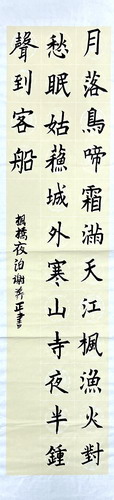 月落鳥啼霜滿天江楓漁火對
愁眠姑蘓城外寒山寺夜半鍾
聲到客船
楓橋夜泊謝正書